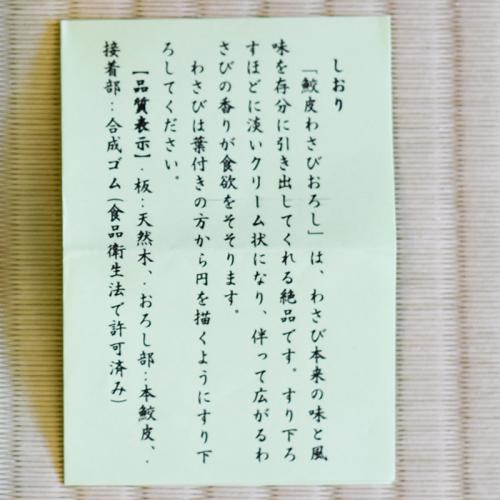 しおり
「鮫皮わさびおろし」は、わさび本来の味と風
味を存分に引き出してくれる絶品です。すり下ろ
すほどに淡いクリーム状になり、伴って広がるわ
さびの香りが食欲をそそります。
わさびは葉付きの方から円を描くようにすり下
ろしてください。
【品質表示】・板：天然木、・おろし部：本鮫皮、・
接着部：合成ゴム(食品衛生法で許可済み)